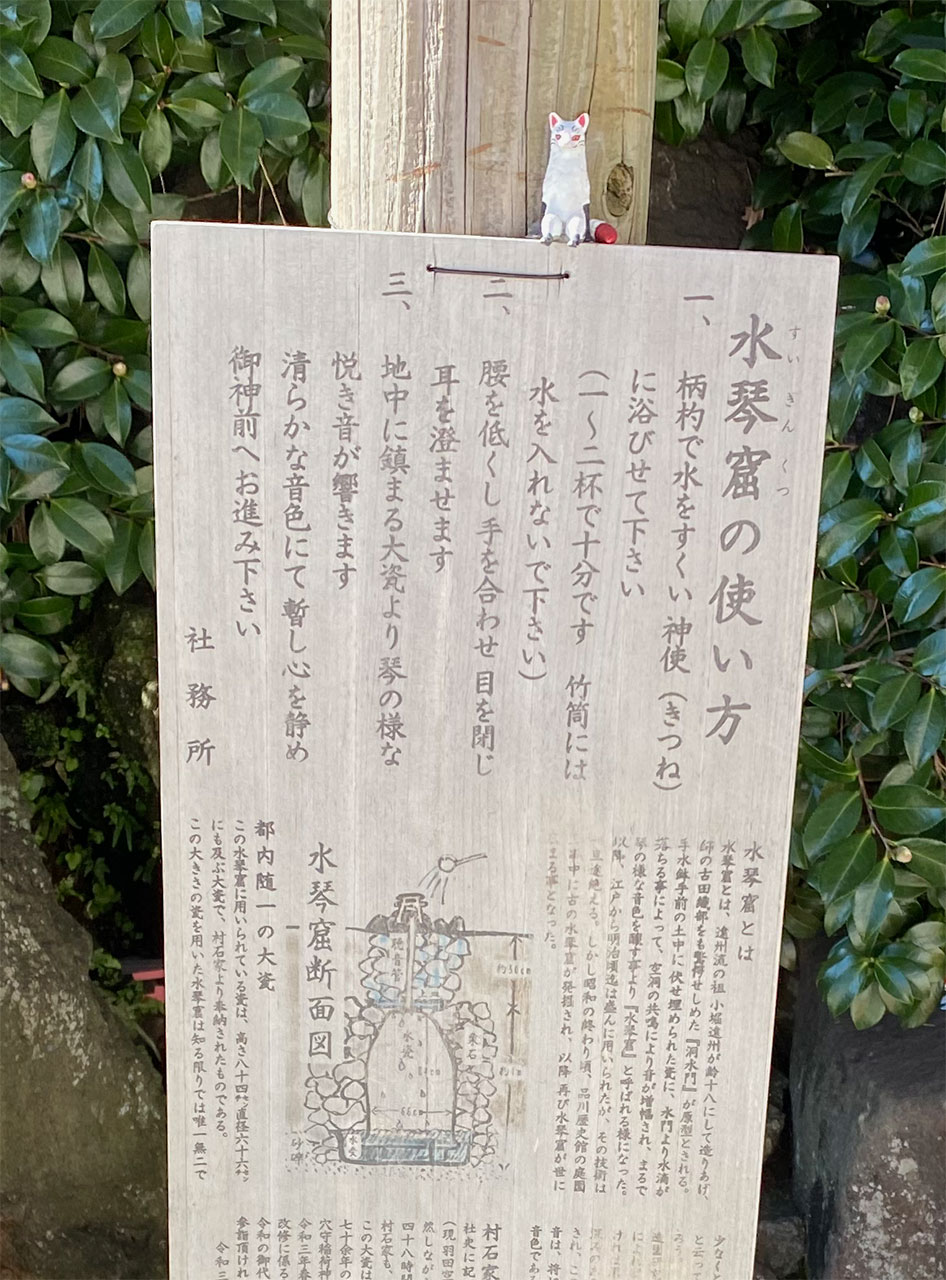 水琴窟の使い方
すいきんくつ
一、柄杓で水をすくい 神使（きつね）
に浴びせて下さい
（一～二杯で十分です 竹筒には
水を入れないで下さい）
二、腰を低くし 手を合わせ 目を閉じ
耳を澄ませます
三、地中に鎮まる大瓷より琴の様な
悦き音が響きます
清らかな音色にて 暫し心を静め
御神前へお進み下さい
社務所
水琴窟とは
水琴窟とは、遠州流の祖 小堀遠州が齢十八にして造りあげ、
師の古田織部をも驚愕せしめた『洞水門』が原型とされる。
手水鉢手前の土中に伏せ埋められた瓷に、水門より水滴が
落ちる事によって、空洞の共鳴により音が増幅され、まるで
琴の様な音色を醸す事より『水琴窟』と呼ばれる様になった。
以降、江戸から明治頃迄は盛んに用いられたが、その技術は
途絶える。しかし昭和の終わり頃、品川歴史館の庭園
中に古の水琴窟が発掘され、以降 再び水琴窟が世に
まる事となった。
水琴窟断面図
聴音管
水瓷
栗石
水受
砂礫
66cm
都内随一の大瓷
この水琴窟に用いられている瓷は、高さ八十四㌢ 直径六十六㌢
にも及ぶ大瓷で、村石家より奉納されたものである。
この大きさの瓷を用いた水琴窟は知る限りでは唯一無二で
少なくと
と云って
村石家
社史に記
（現羽田空
然しなが
四十八時間
村石家も、
この大瓷は
七十余年の
穴守稲荷神
令和三年春
改修に係る
令和の御代
参詣頂けれ
令和三